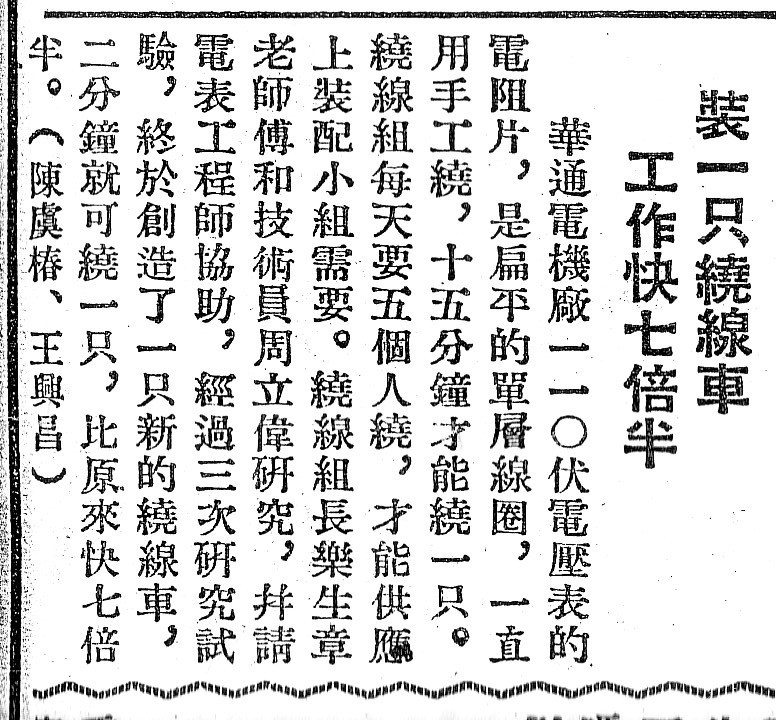 裝一只繞線車
工作快七倍半
華通電機廠一一〇伏電壓表的
電阻片，是扁平的單層線圈，一直
用手工繞，十五分鐘才能繞一只。
繞線組每天要五個人繞，才能供應
上裝配小組需要。繞線組長樂生章
老師傅和技術員周立偉研究，幷請
電表工程師協助，經過三次研究試
驗，終於創造了一只新的繞線車，
二分鐘就可繞一只，比原來快七倍
半。（陳虞椿、王興昌）